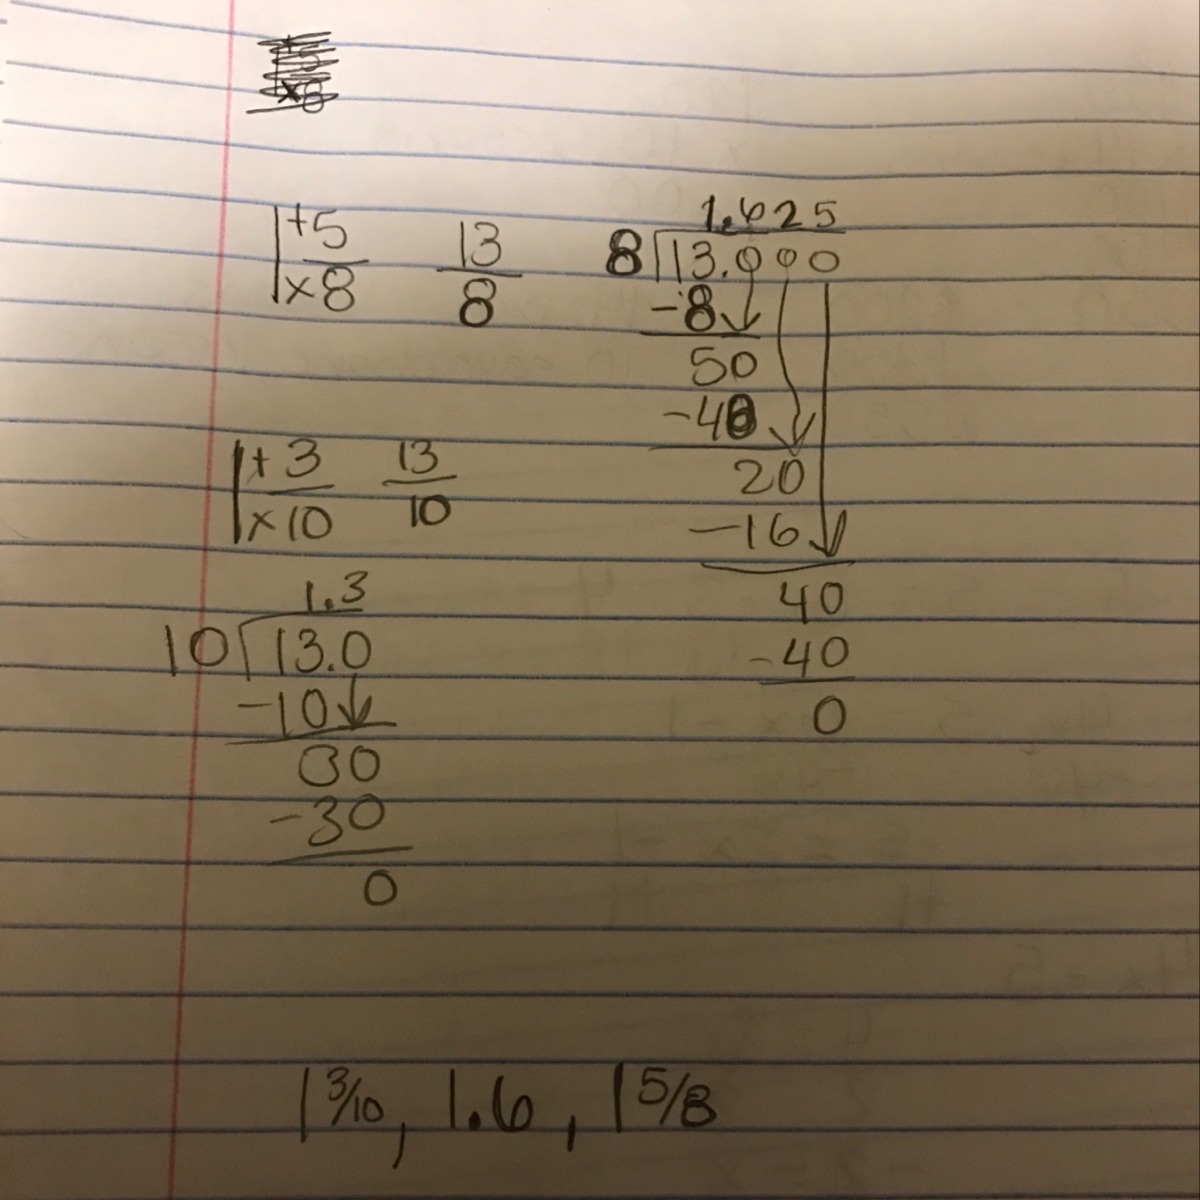 1 +5/×8 13/8
1.625
8 13.000
-8
50
-40
20
-16
40
-40
0
1 +3/×10 13/10
1.3
10 13.0
-10
30
-30
0
1 3/10, 1.6, 1 5/8